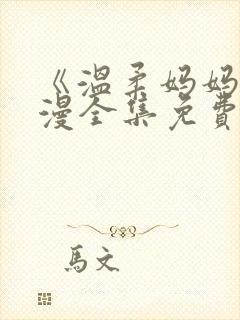 《温柔妈妈
漫全集免費
馬文